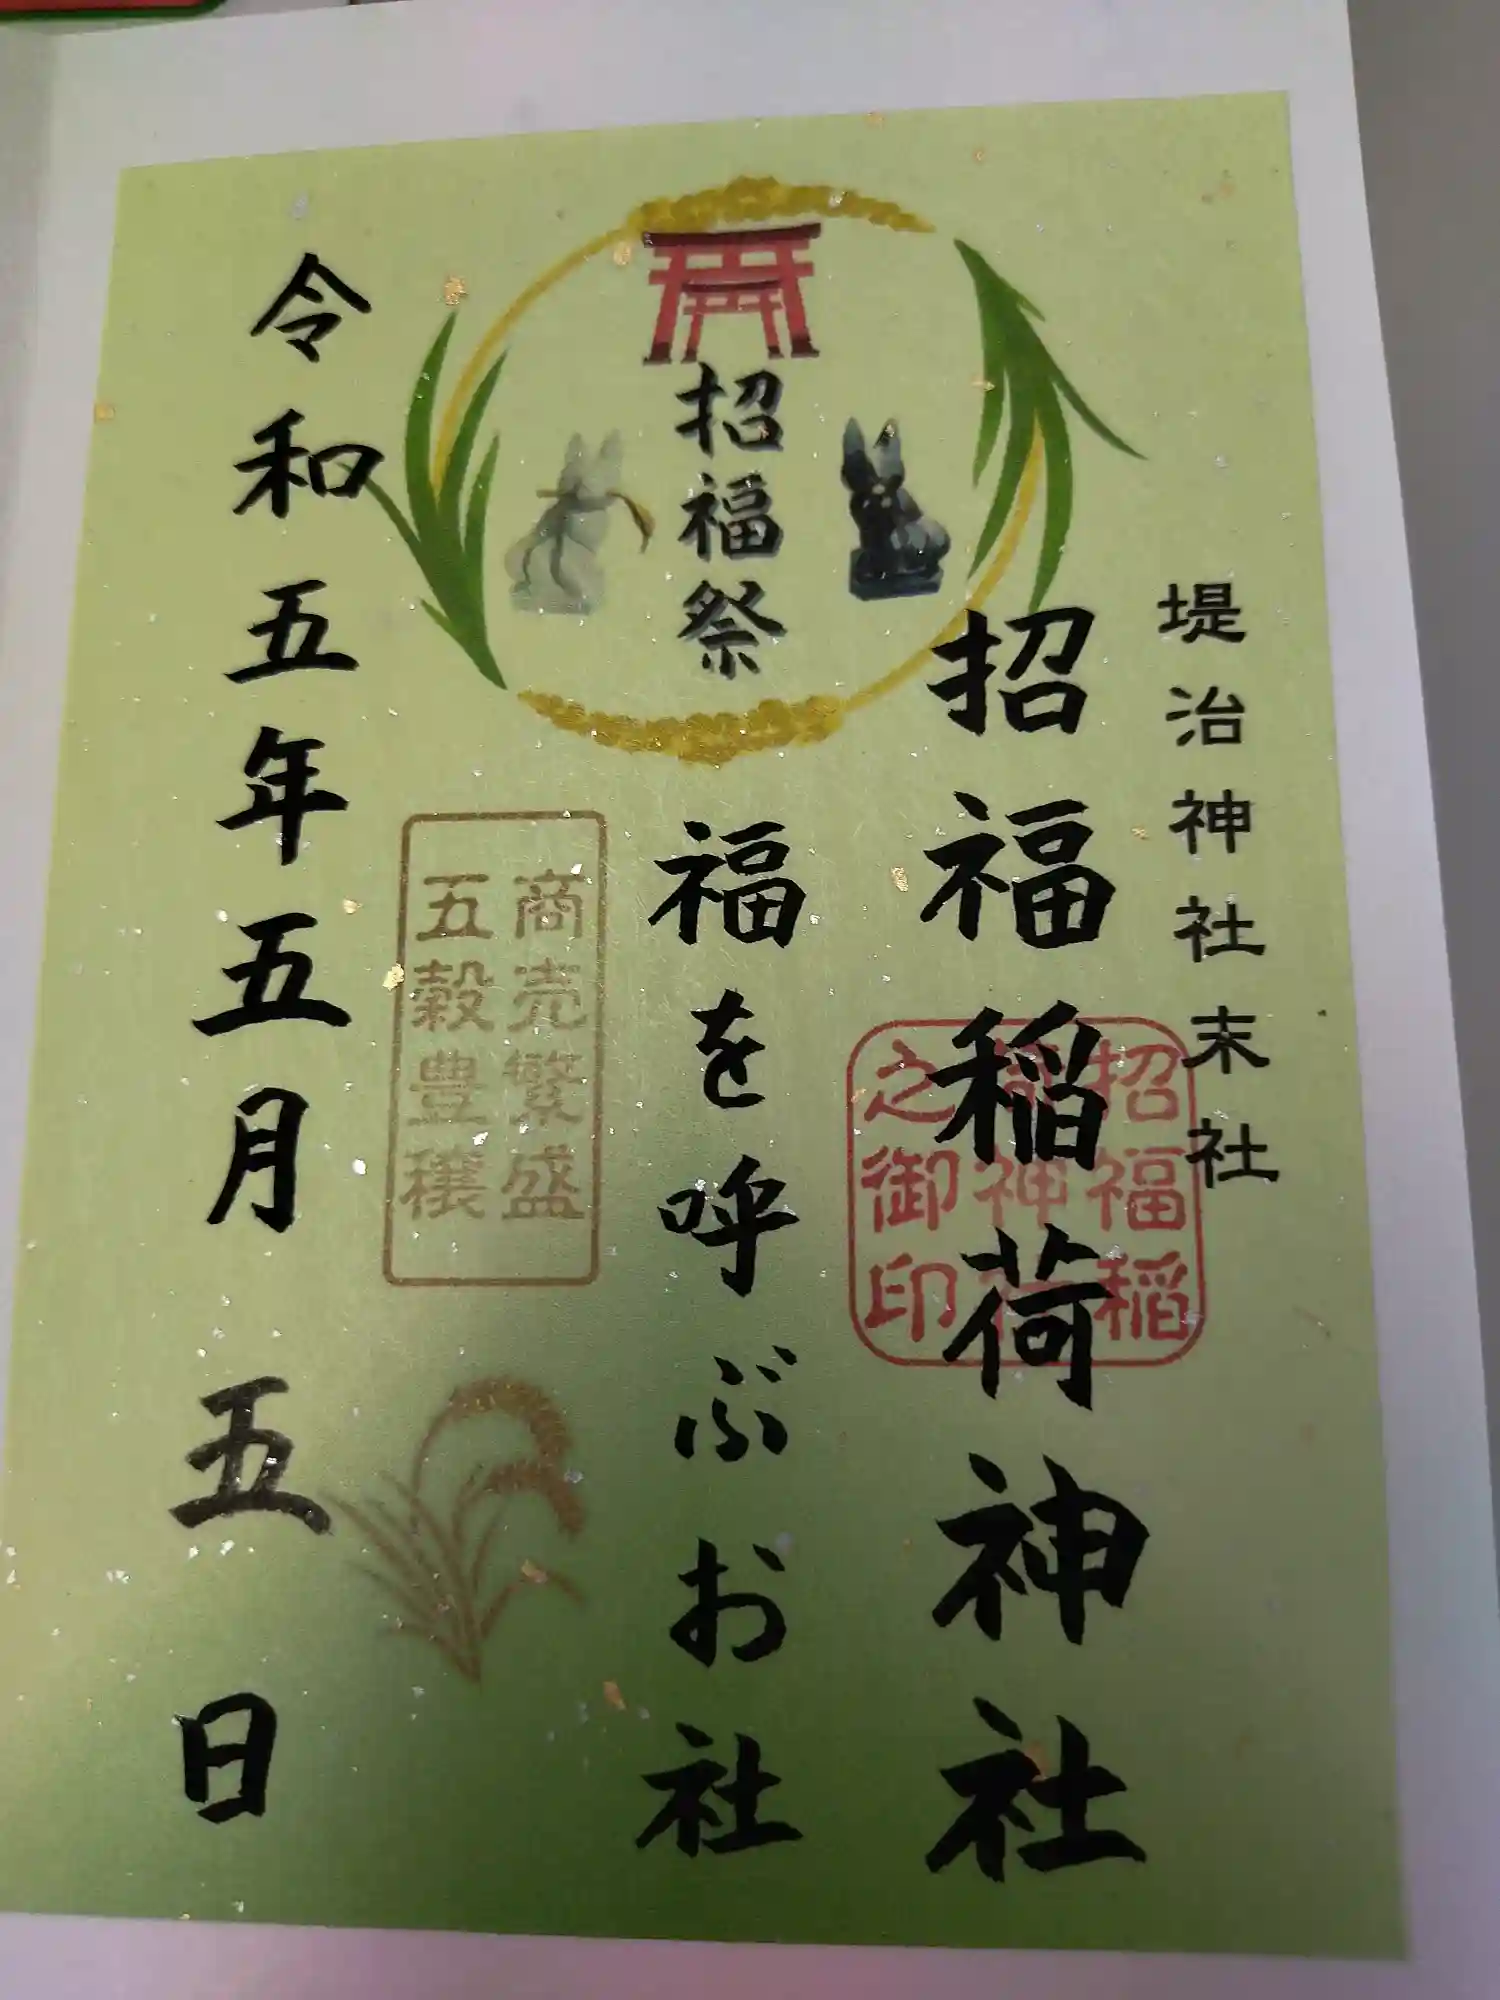 堤治神社末社
招福稲荷神社
招福稲
神
之御印
招福祭
福を呼ぶお社
商売繁盛
五穀豊穣
令和五年五月五日